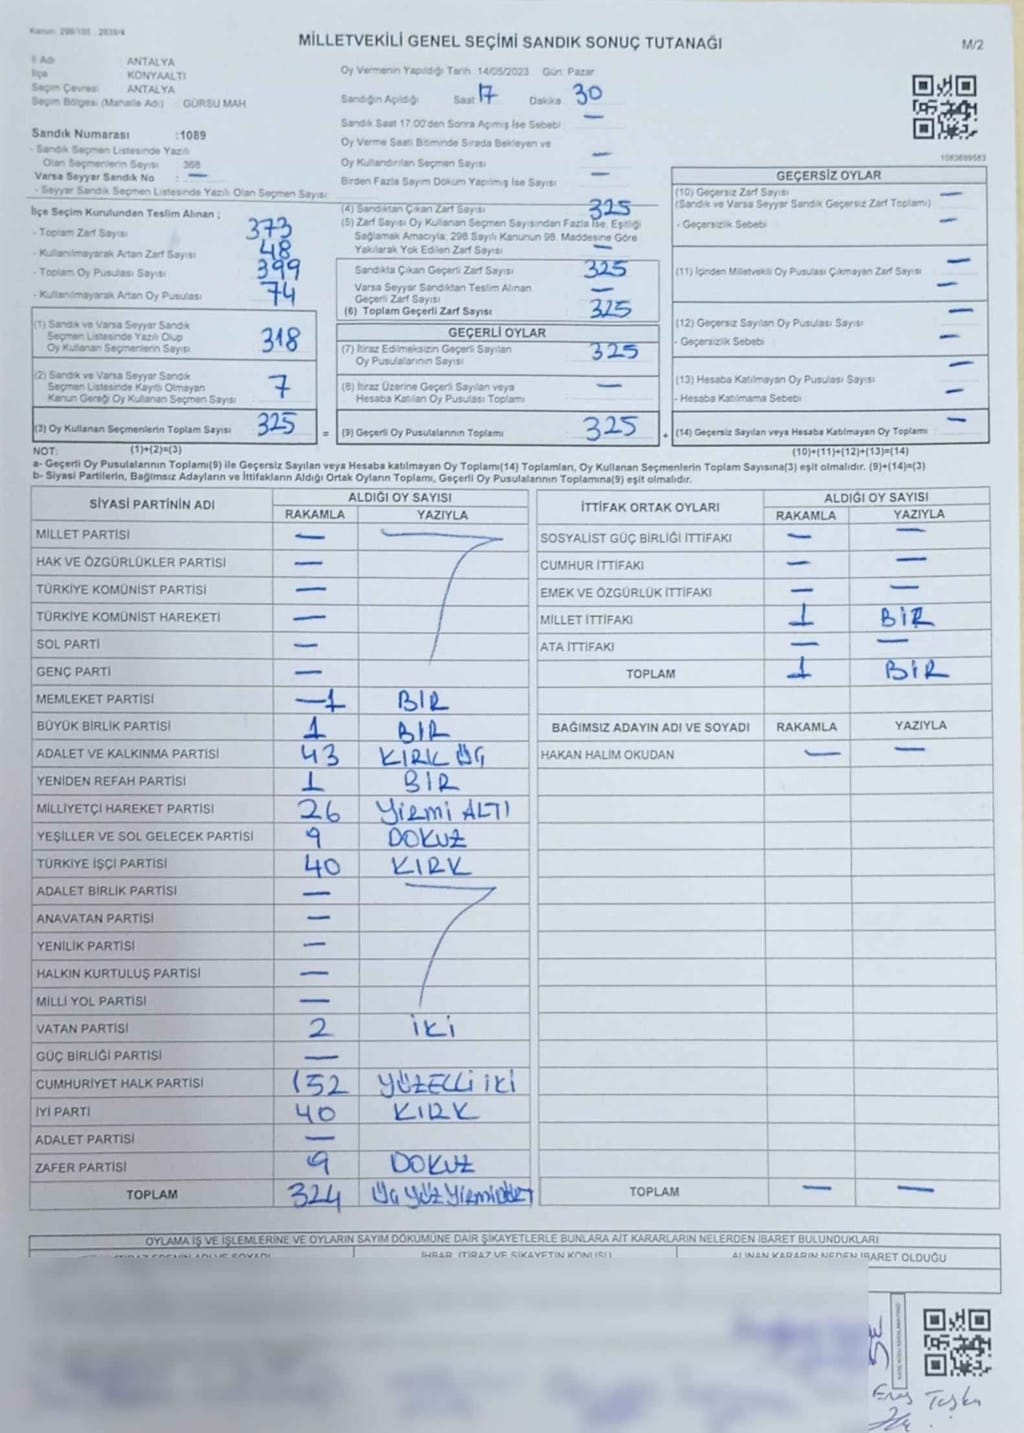 Kanun: 298/105 , 2839/4
MİLLETVEKİLİ GENEL SEÇİMİ SANDIK SONUÇ TUTANAĞI
M/2
İl Adı : ANTALYA
İlçe : KONYAALTI
Seçim Çevresi : ANTALYA
Seçim Bölgesi (Mahalle Adı) : GÜRSU MAH.
Sandık Numarası :1089
- Sandık Seçmen Listesinde Yazılı
Olan Seçmenlerin Sayısı : 368
Varsa Seyyar Sandık No : —
- Seyyar Sandık Seçmen Listesinde Yazılı Olan Seçmen Sayısı
Oy Vermenin Yapıldığı Tarih :14/05/2023 Gün: Pazar
Sandığın Açıldığı Saat 17 Dakika 30
Sandık Saat 17.00'den Sonra Açımış İse Sebebi : —
Oy Verme Saati Bitiminde Sırada Bekleyen ve
Oy Kullandırılan Seçmen Sayısı —
Birden Fazla Sayım Döküm Yapılmış İse Sayısı —
1583689583
İlçe Seçim Kurulundan Teslim Alınan ;
- Toplam Zarf Sayısı 373
- Kullanılmayarak Artan Zarf Sayısı 48
- Toplam Oy Pusulası Sayısı 399
- Kullanılmayarak Artan Oy Pusulası 74
(1) Sandık ve Varsa Seyyar Sandık
Seçmen Listesinde Yazılı Olup
Oy Kullanan Seçmenlerin Sayısı 318
(2) Sandık ve Varsa Seyyar Sandık
Seçmen Listesinde Kayıtlı Olmayan
Kanun Gereği Oy Kullanan Seçmen Sayısı 7
(3) Oy Kullanan Seçmenlerin Toplam Sayısı 325
(4) Sandıktan Çıkan Zarf Sayısı 325
(5) Zarf Sayısı Oy Kullanan Seçmen Sayısından Fazla İse, Eşitliği
Sağlamak Amacıyla, 298 Sayılı Kanunun 98. Maddesine Göre
Yakılarak Yok Edilen Zarf Sayısı —
Sandıkta Çıkan Geçerli Zarf Sayısı 325
Varsa Seyyar Sandıktan Teslim Alınan
Geçerli Zarf Sayısı —
(6) Toplam Geçerli Zarf Sayısı 325
GEÇERLİ OYLAR
(7) İtiraz Edilmeksizin Geçerli Sayılan
Oy Pusulalarının Sayısı 325
(8) İtiraz Üzerine Geçerli Sayılan veya
Hesaba Katılan Oy Pusulası Toplamı —
= (9) Geçerli Oy Pusulalarının Toplamı 325 +
GEÇERSİZ OYLAR
(10) Geçersiz Zarf Sayısı —
(Sandık ve Varsa Seyyar Sandık Geçersiz Zarf Toplamı)
- Geçersizlik Sebebi —
(11) İçinden Milletvekili Oy Pusulası Çıkmayan Zarf Sayısı —
—
(12) Geçersiz Sayılan Oy Pusulası Sayısı —
- Geçersizlik Sebebi —
(13) Hesaba Katılmayan Oy Pusulası Sayısı —
- Hesaba Katılmama Sebebi —
(14) Geçersiz Sayılan veya Hesaba Katılmayan Oy Toplamı —
NOT: (1)+(2)=(3) (10)+(11)+(12)+(13)=(14)
a- Geçerli Oy Pusulalarının Toplamı(9) ile Geçersiz Sayılan veya Hesaba katılmayan Oy Toplamı(14) Toplamları, Oy Kullanan Seçmenlerin Toplam Sayısına(3) eşit olmalıdır. (9)+(14)=(3)
b- Siyasi Partilerin, Bağımsız Adayların ve İttifakların Aldığı Ortak Oyların Toplamı, Geçerli Oy Pusulalarının Toplamına(9) eşit olmalıdır.
SİYASİ PARTİNİN ADI ALDIĞI OY SAYISI
RAKAMLA YAZIYLA
MİLLET PARTİSİ —
HAK VE ÖZGÜRLÜKLER PARTİSİ —
TÜRKİYE KOMÜNİST PARTİSİ —
TÜRKİYE KOMÜNİST HAREKETİ —
SOL PARTİ —
GENÇ PARTİ —
MEMLEKET PARTİSİ —1 BİR
BÜYÜK BİRLİK PARTİSİ 1 BİR
ADALET VE KALKINMA PARTİSİ 43 KIRK ÜÇ
YENİDEN REFAH PARTİSİ 1 BİR
MİLLİYETÇİ HAREKET PARTİSİ 26 YİRMİ ALTI
YEŞİLLER VE SOL GELECEK PARTİSİ 9 DOKUZ
TÜRKİYE İŞÇİ PARTİSİ 40 KIRK
ADALET BİRLİK PARTİSİ —
ANAVATAN PARTİSİ —
YENİLİK PARTİSİ —
HALKIN KURTULUŞ PARTİSİ —
MİLLİ YOL PARTİSİ —
VATAN PARTİSİ 2 İKİ
GÜÇ BİRLİĞİ PARTİSİ —
CUMHURİYET HALK PARTİSİ 152 YÜZELLİ İKİ
İYİ PARTİ 40 KIRK
ADALET PARTİSİ —
ZAFER PARTİSİ 9 DOKUZ
TOPLAM 324 Üç Yüz Yirmi dört
İTTİFAK ORTAK OYLARI ALDIĞI OY SAYISI
RAKAMLA YAZIYLA
SOSYALİST GÜÇ BİRLİĞİ İTTİFAKI — —
CUMHUR İTTİFAKI — —
EMEK VE ÖZGÜRLÜK İTTİFAKI — —
MİLLET İTTİFAKI 1 BİR
ATA İTTİFAKI — —
TOPLAM 1 BİR
BAĞIMSIZ ADAYIN ADI VE SOYADI RAKAMLA YAZIYLA
HAKAN HALİM OKUDAN — —
TOPLAM — —
OYLAMA İŞ VE İŞLEMLERİNE VE OYLARIN SAYIM DÖKÜMÜNE DAİR ŞİKAYETLERLE BUNLARA AİT KARARLARIN NELERDEN İBARET BULUNDUKLARI
İTİRAZ EDENİN ADI VE SOYADI İHBAR, İTİRAZ VE ŞİKAYETİN KONUSU ALINAN KARARIN NEDEN İBARET OLDUĞU